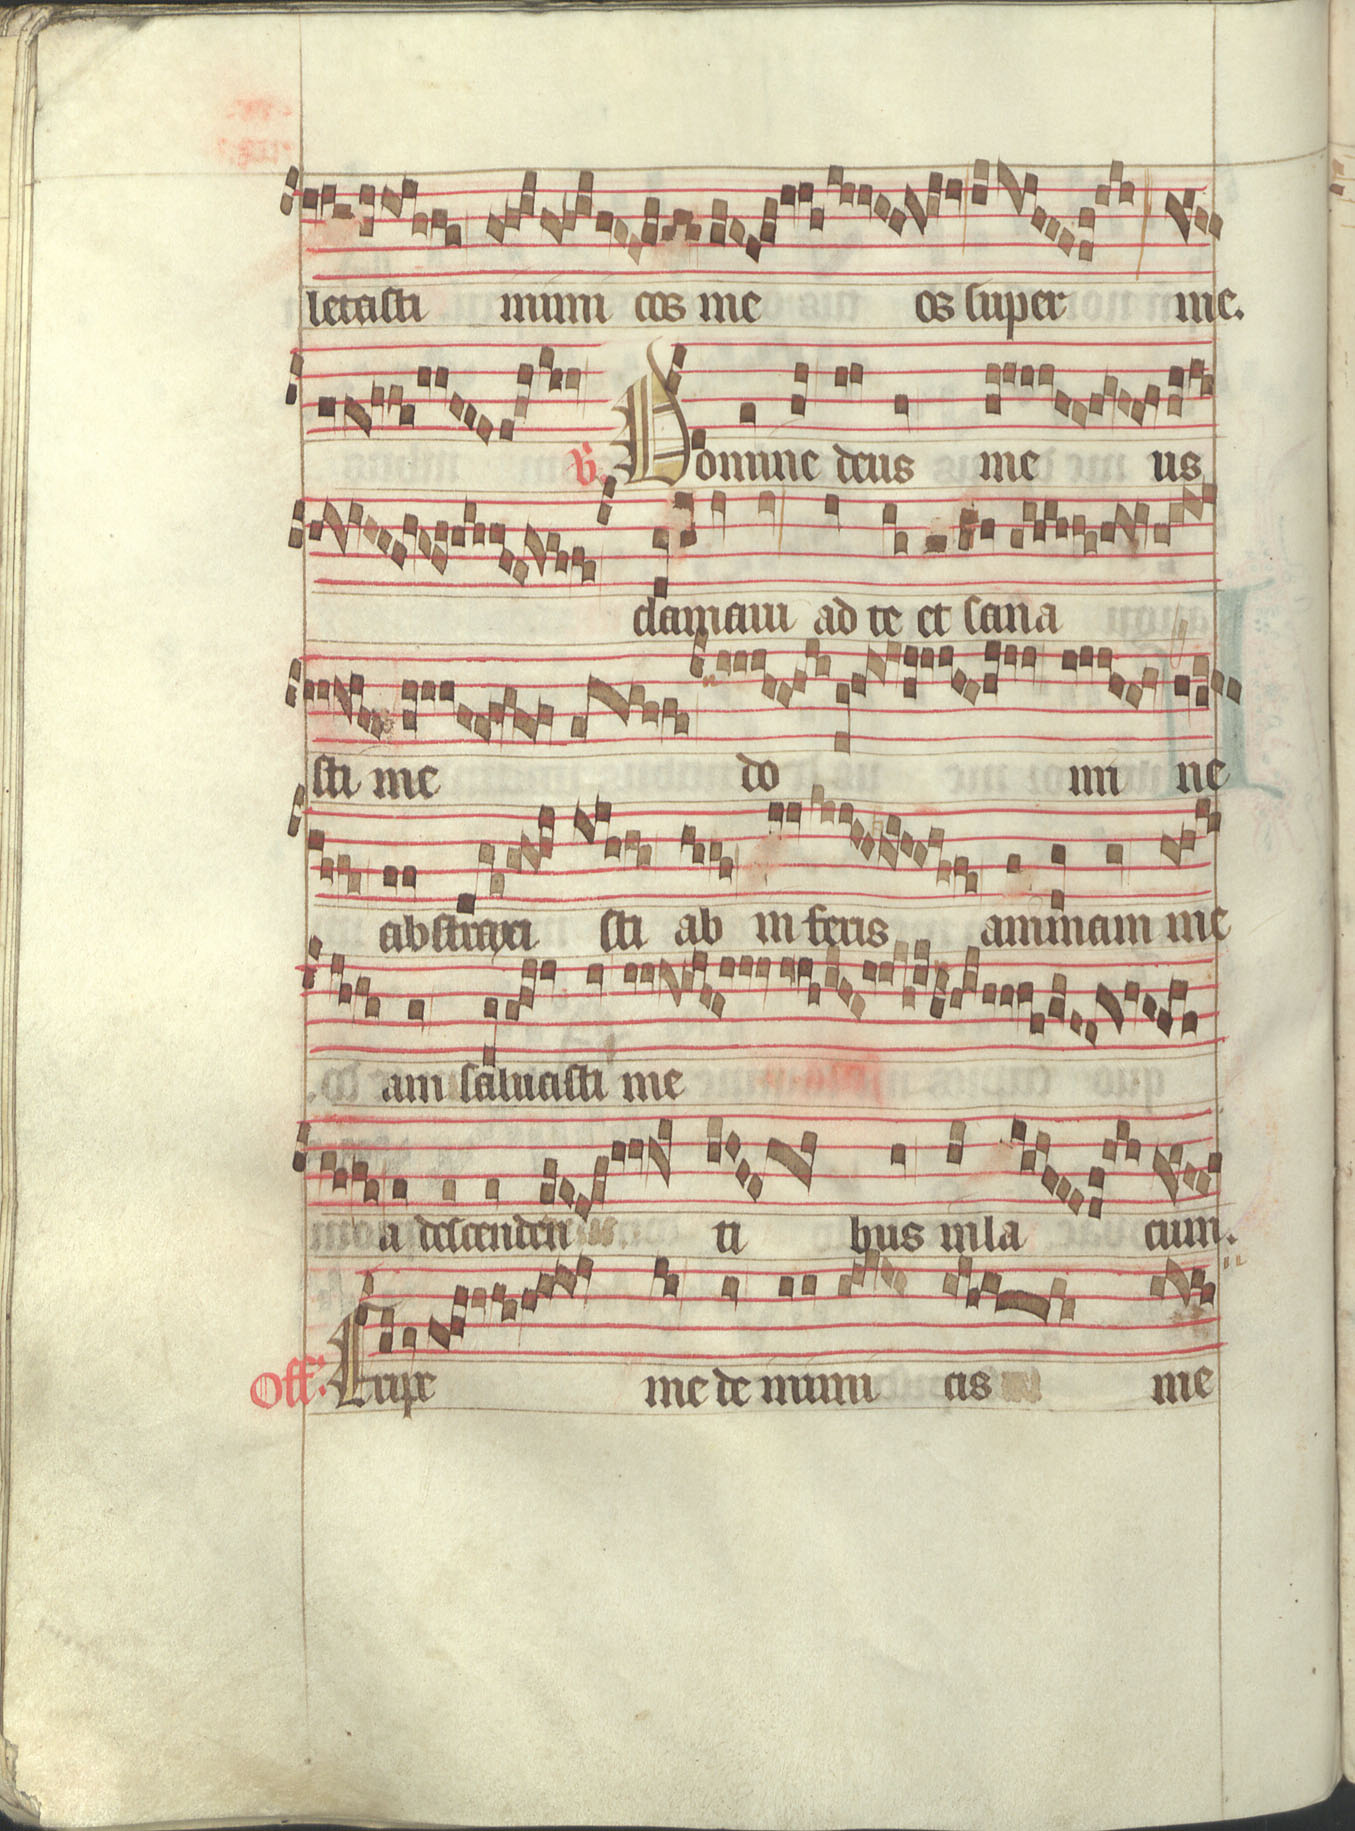 lectasti inimi cos me os super me.
V. Domine deus me us
clamaui ad te et sana
sti me do mi ne
abstraxi sti ab in feris animam me
am saluasti me
a descenden ti bus in la cum.
Off: Eripe me de inimi cis me